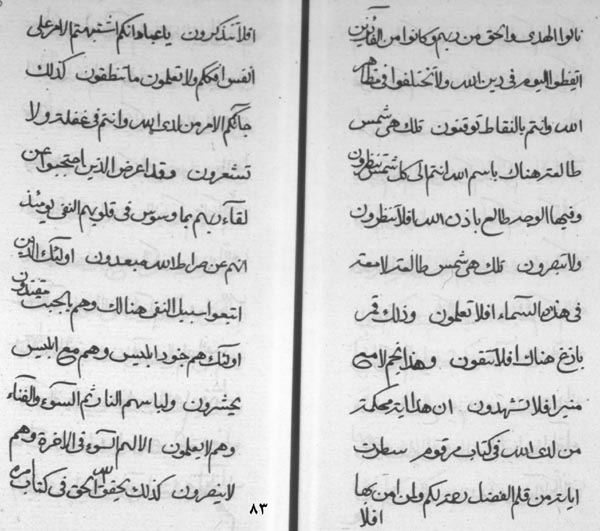 نالوا الهدى والحق من ربهم وكانوا من الفائزين
اتقطوا اليوم فى دين الله ولا تختلفوا فى مظاهر
الله وانتم بالنقاط توقنون تلك هى شمس
طالعة هناك باسم الله انتم الى كل شمس تنظرون
وفيها الوجه طالع باذن الله افلا تنظرون
ولا تبصرون تلك هى شمس طالعة لامعة
فى هذه السماء افلا تعلمون وذلك قمر
بازغ هناك افلا تتقون وهذا نجم لامع
منير افلا تشهدون ان هذا اية محكمة
من لدى الله فى كتاب مرقوم سطرت
اياته من قلم الفضل رحمة لكم ولمن امن بها
افلا
افلا تتذكرون يا عباد انكم اشتبهتم الامر على
انفس افككم ولا تعلمون ما تنطقون كذلك
جائكم الامر من لدى الله وانتم فى غفلة ولا
تشعرون وقد اعرض الذين احتجبوا عن
لقاء ربهم بما وسوس فى قلوبهم النفى يومئذ
انهم عن صراط الله مبعدون اولئك الذين
اتبعوا سبيل النفى هنالك وهم بالجبت يقتدون
اولئك هم جنود ابليس وهم مع ابليس
يحشرون ولباسهم النار ثم السوء والفناء
وهم لا يعلمون الا لهم السوء فى الاخرة وهم
لا ينصرون كذلك يحقق الله الحق فى كتاب امره
٨٣